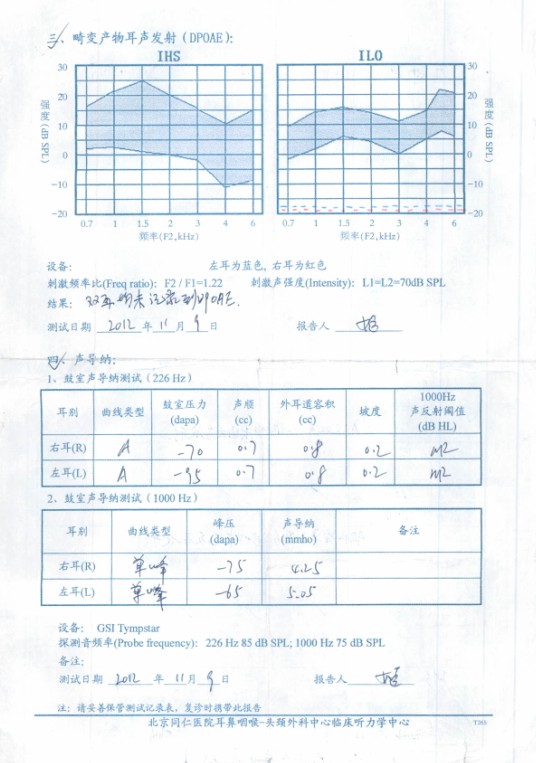 三、畸变产物耳声发射（DPOAE）:
IHS ILO
强度（dB SPL）
30
20
10
0
-10
-20
0.7 1 1.5 2 3 4 6
频率(F2,kHz)
30
20
10
0
-10
-20
强度（dB SPL）
0.7 1 1.5 2 3 4 6
频率(F2,kHz)
设备: 左耳为蓝色, 右耳为红色
刺激频率比(Freq ratio): F2 / F1=1.22 刺激声强度(Intensity): L1=L2=70dB SPL
结果: 双耳均未记录到DPOAE.
测试日期 2012 年 11 月 9 日 报告人
四、声导纳:
1、鼓室声导纳测试（226 Hz）
耳别 曲线类型 鼓室压力(dapa) 声顺(cc) 外耳道容积(cc) 坡度 1000Hz声反射阈值(dB HL)
右耳(R) A -70 0.7 0.8 0.2
左耳(L) A -95 0.7 0.8 0.2
2、鼓室声导纳测试（1000 Hz）
耳别 曲线类型 峰压(dapa) 声导纳(mmho) 备注
右耳(R) 单峰 -75 4.25
左耳(L) 单峰 -65 5.05
设备: GSI Tympstar
探测音频率(Probe frequency): 226 Hz 85 dB SPL; 1000 Hz 75 dB SPL
备注:
测试日期 2012 年 11 月 9 日 报告人
注: 请妥善保管测试记录表, 复诊时携带此报告
北京同仁医院耳鼻咽喉-头颈外科中心临床听力学中心